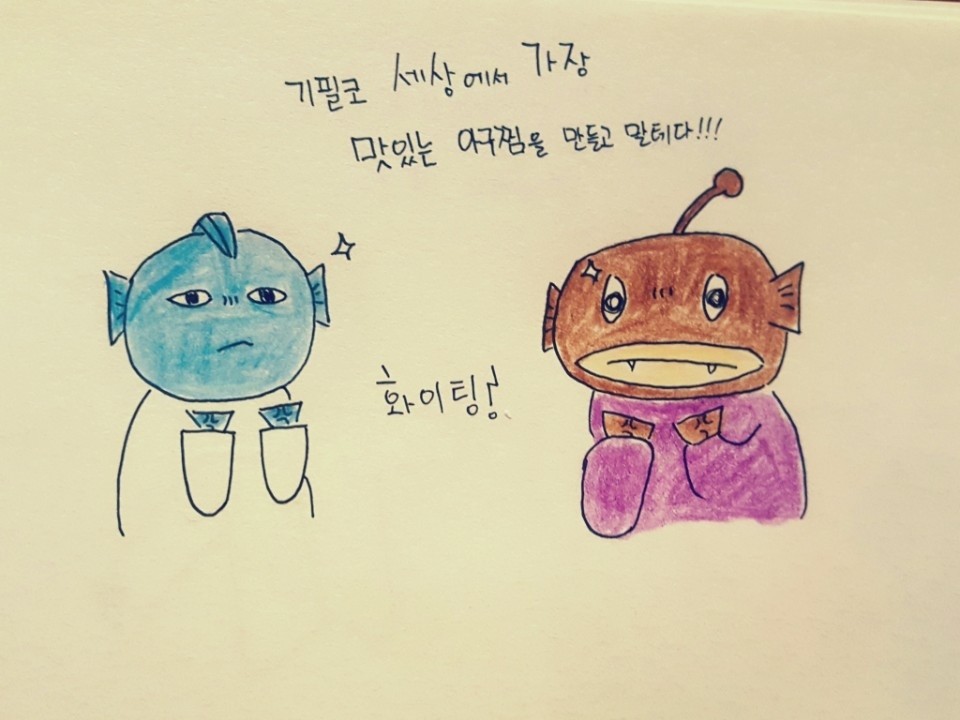 기필코 세상에서 가장
맛있는 아구찜을 만들고 말테다!!!
화이팅!